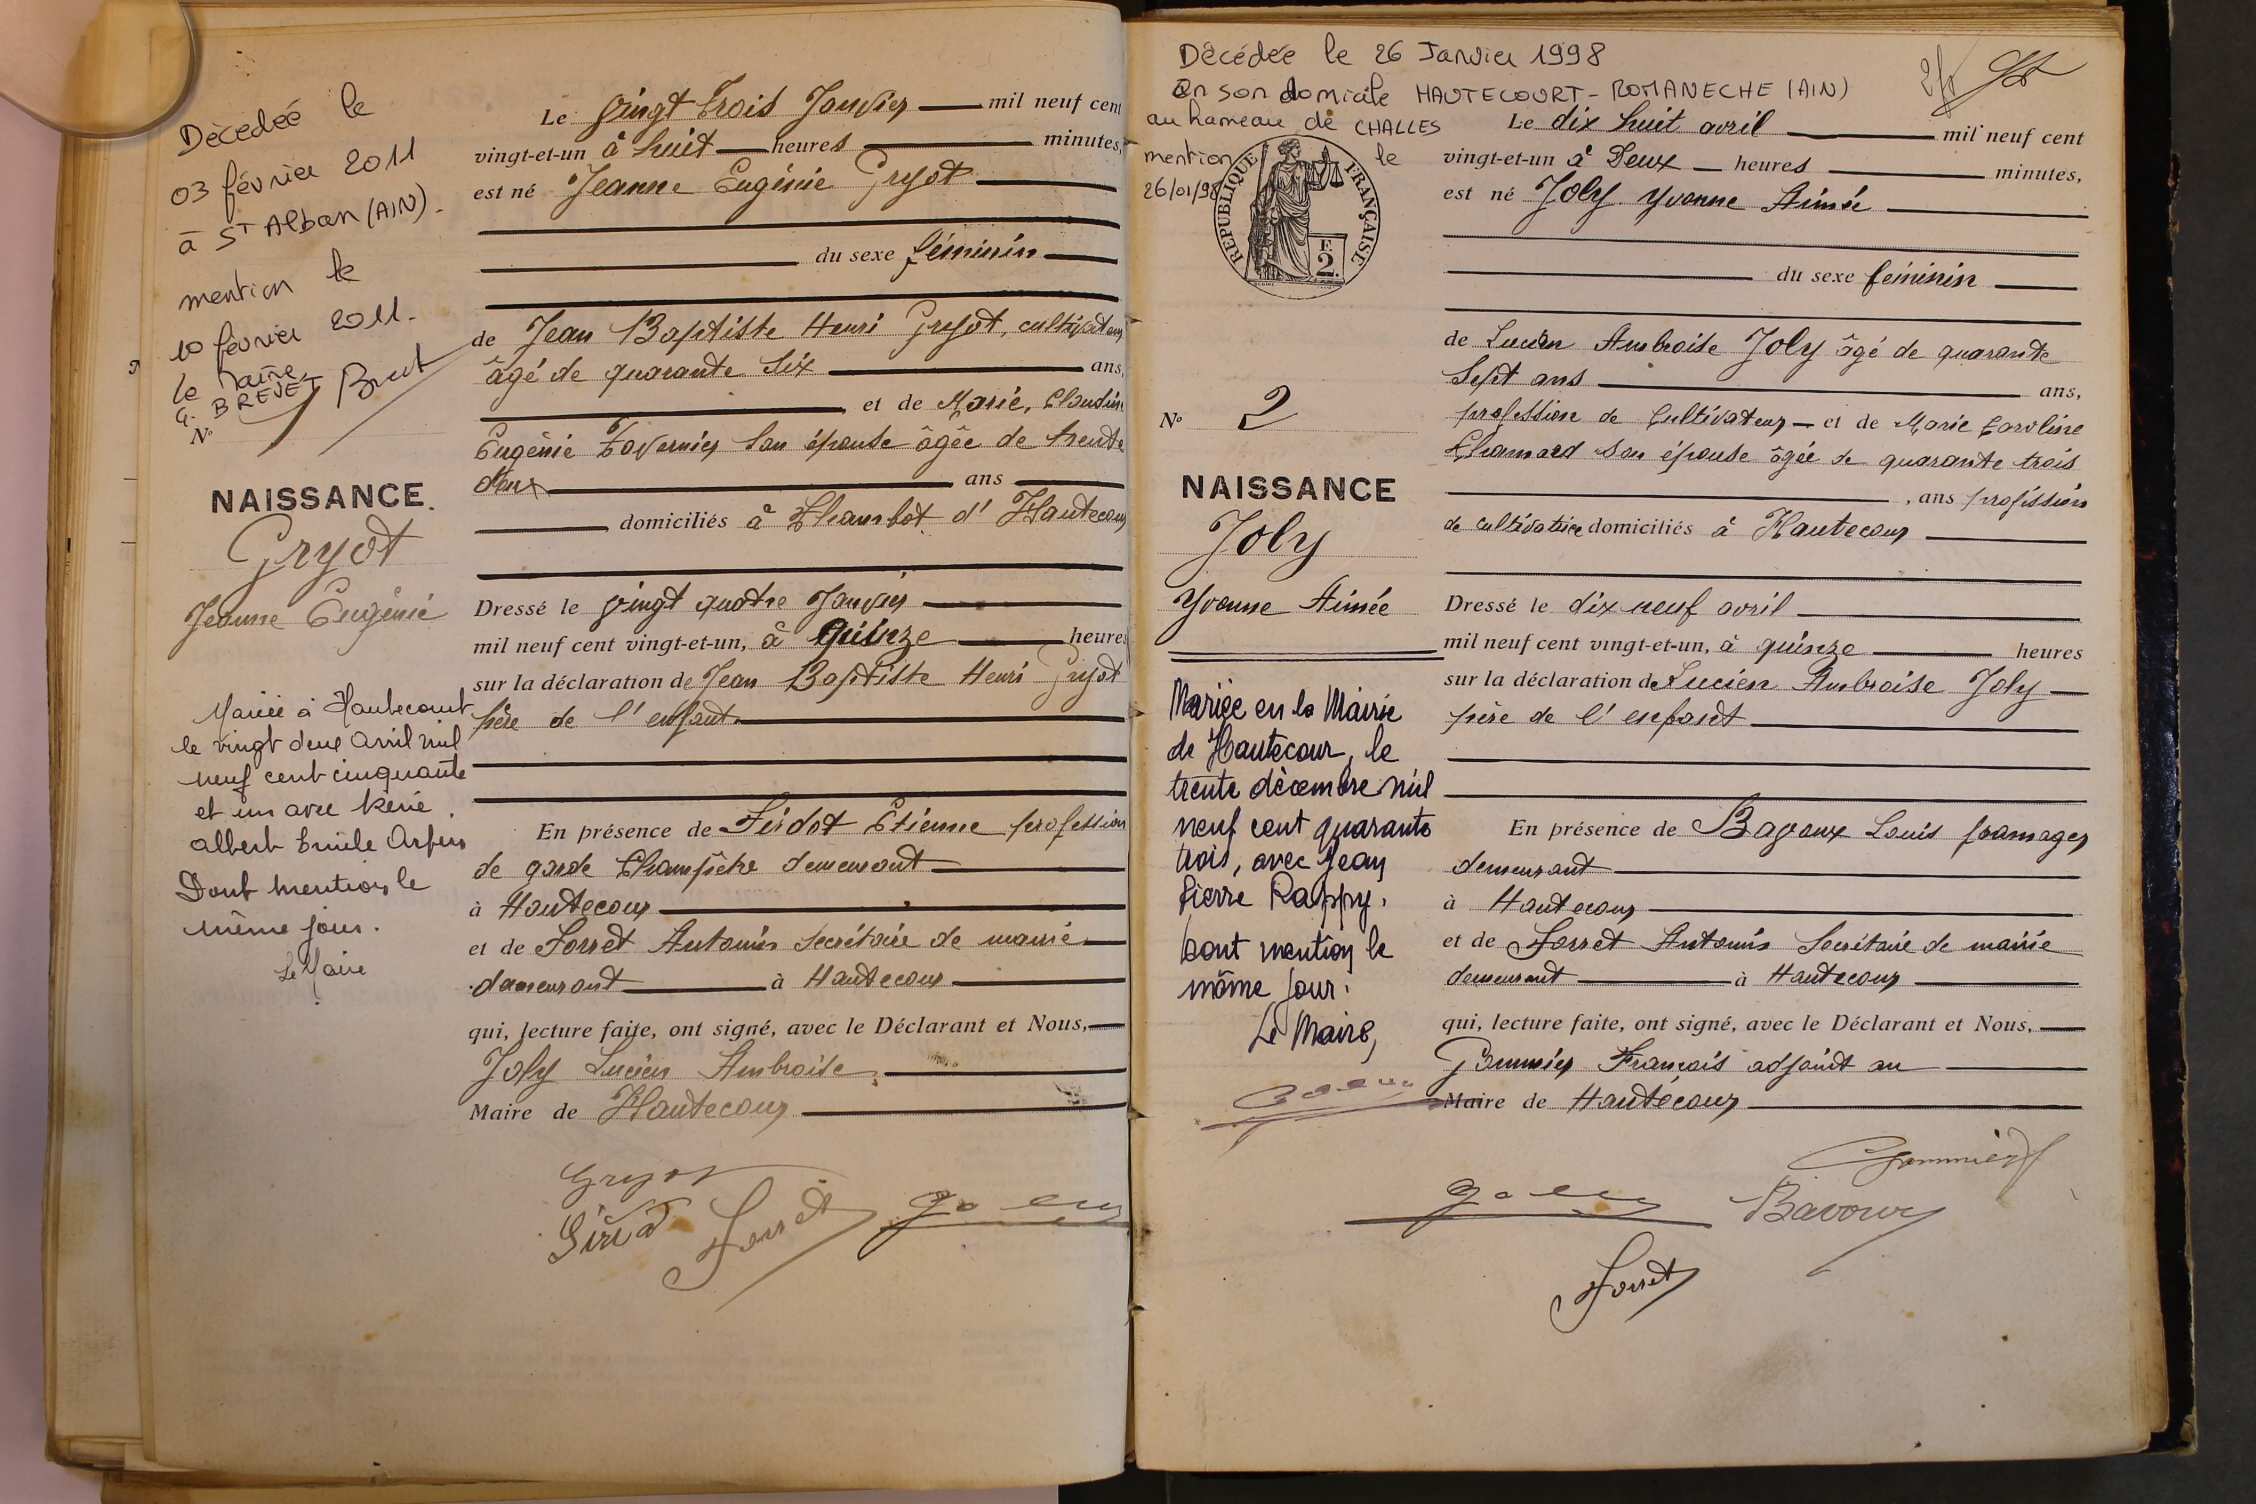 Décédée le
03 février 2011
à St Alban (AIN).
mention le
10 février 2011.
le Maire,
G. BREVET
No
NAISSANCE.
Gryot
Jeanne Eugénie
Mariée à Hautecourt
le vingt deux avril mil
neuf cent cinquante
et un avec René
Albert Emile
Dont mention le
même jour.
Le Maire
Le vingt trois Janvier mil neuf cent
vingt-et-un à huit heures minutes,
est né Jeanne Eugénie Gryot
du sexe féminin
de Jean Baptiste Henri Gryot, cultivateur
âgé de quarante six ans,
et de Marie, Claudine
Eugénie Tavernier son épouse âgée de trente
deux ans
domiciliés à Chambot d'Hautecour
Dressé le vingt quatre Janvier
mil neuf cent vingt-et-un, à quinze heures
sur la déclaration de Jean Baptiste Henri Gryot
père de l'enfant
En présence de Etienne profession
de garde Champêtre demeurant
à Hautecour
et de Forret Antonin secrétaire de mairie
demeurant à Hautecour
qui, lecture faite, ont signé, avec le Déclarant et Nous,
Joly Lucien Ambroise
Maire de Hautecour
Gryot
Forret Joly
Décédée le 26 Janvier 1998
en son domicile HAUTECOURT-ROMANECHE (AIN)
au hameau de CHALLES
mention le
26/01/98
RÉPUBLIQUE FRANÇAISE
2
No 2
NAISSANCE
Joly
Yvonne Aimée
Mariée en la Mairie
de Hautecour, le
trente décembre mil
neuf cent quarante
trois, avec Jean
Pierre Rappy.
Dont mention le
même jour.
Le Maire,
Le dix huit avril mil neuf cent
vingt-et-un à Deux heures minutes,
est né Joly Yvonne Aimée
du sexe féminin
de Lucien Ambroise Joly âgé de quarante
Sept ans ans,
profession de Cultivateur et de Marie Caroline
Chanard son épouse âgée de quarante trois
, ans profession
de cultivatrice domiciliés à Hautecour
Dressé le dix neuf avril
mil neuf cent vingt-et-un, à quinze heures
sur la déclaration de Lucien Ambroise Joly
père de l'enfant
En présence de Bavoux Louis fromager
demeurant
à Hautecour
et de Forret Antonin Secrétaire de mairie
demeurant à Hautecour
qui, lecture faite, ont signé, avec le Déclarant et Nous,
Gommier François adjoint au
Maire de Hautecour
Gommier
Joly Bavoux
Forret